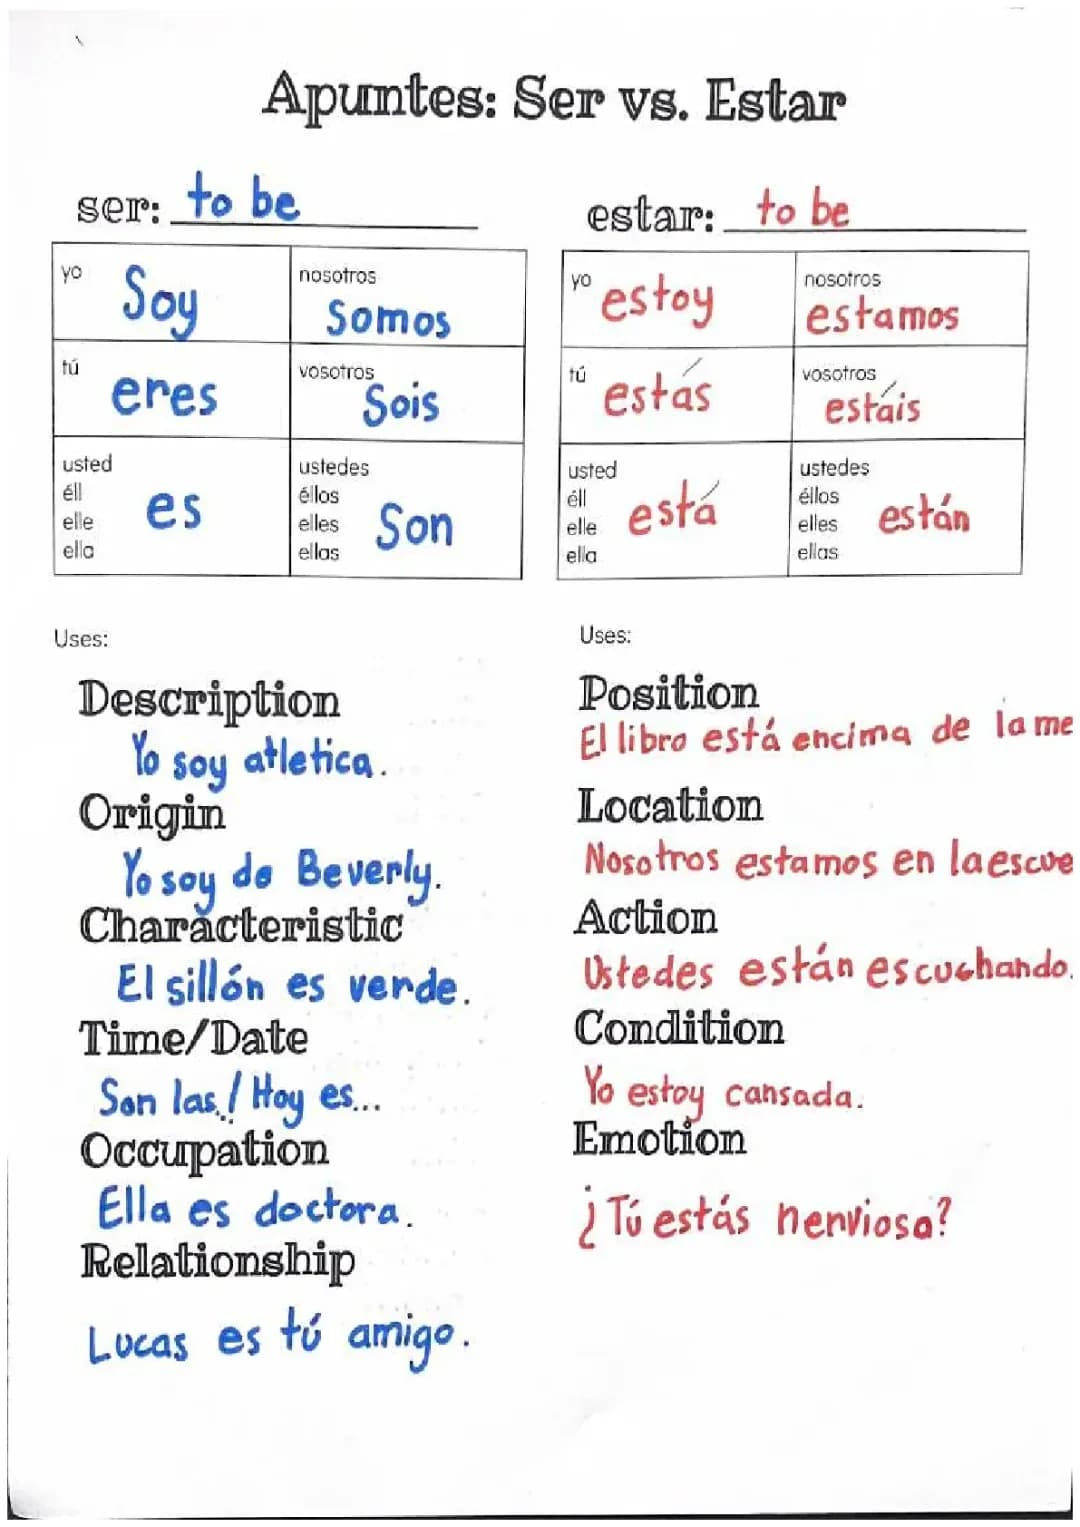 Apuntes: Ser vs. Estar
ser: to be
yo Soy
nosotros somos
tú eres
vosotros Sois
usted
éll
elle
ella
es
ustedes
éllos
elles
ellas
Son
estar: to be
yo estoy
nosotros estamos
tú estás
vosotros estáis
usted
éll
elle
ella
está
ustedes
éllos
elles
ellas
están
Uses:
Description
Yo soy atletica.
Origin
Yo soy de Beverly.
Characteristic
El sillón es verde.
Time/Date
Son las../ Hoy es...
Occupation
Ella es doctora.
Relationship
Lucas es tú amigo.
Uses:
Position
El libro está encima de la me
Location
Nosotros estamos en la escue
Action
Ustedes están escuchando.
Condition
Yo estoy cansada.
Emotion
¿Tú estás nerviosa?